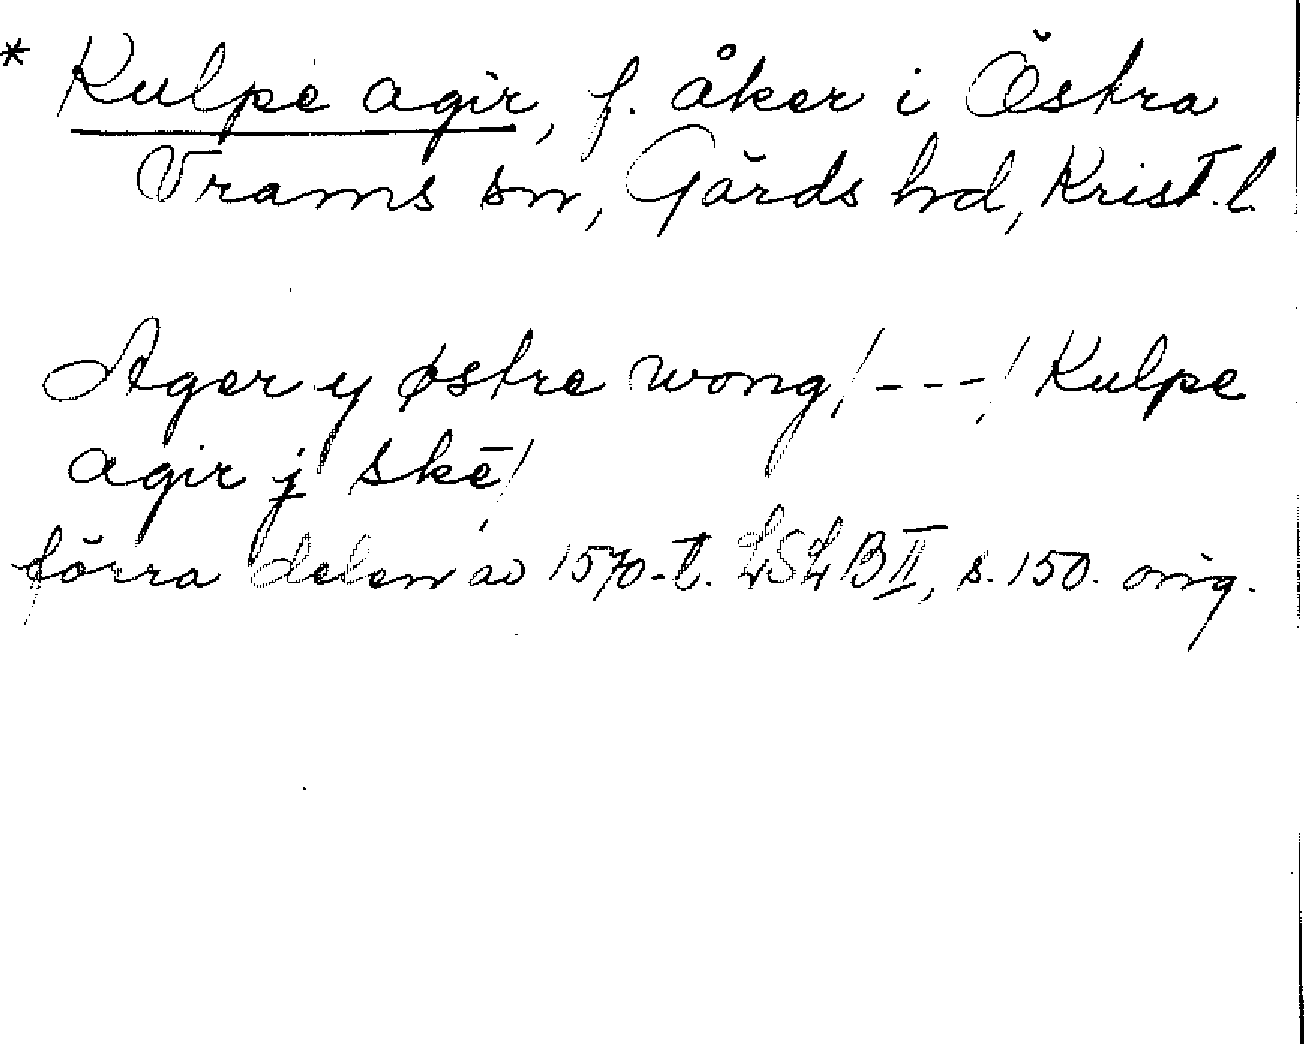 * Kulpe agir, f. åker i Östra
Vrams sn, Gärds hd, Krist. l.
Ager y østre wong / - - - / Kulpe
agir j skē /
förra delen av 1570-t. LSLB II, s. 150. orig.